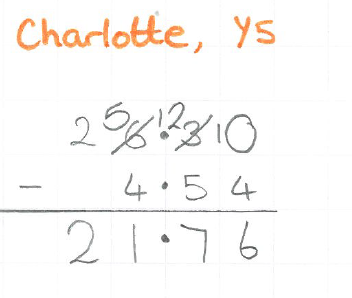 Charlotte, Y5
2 5 6 . 12 3 10
- 4 . 5 4
2 1 . 7 6